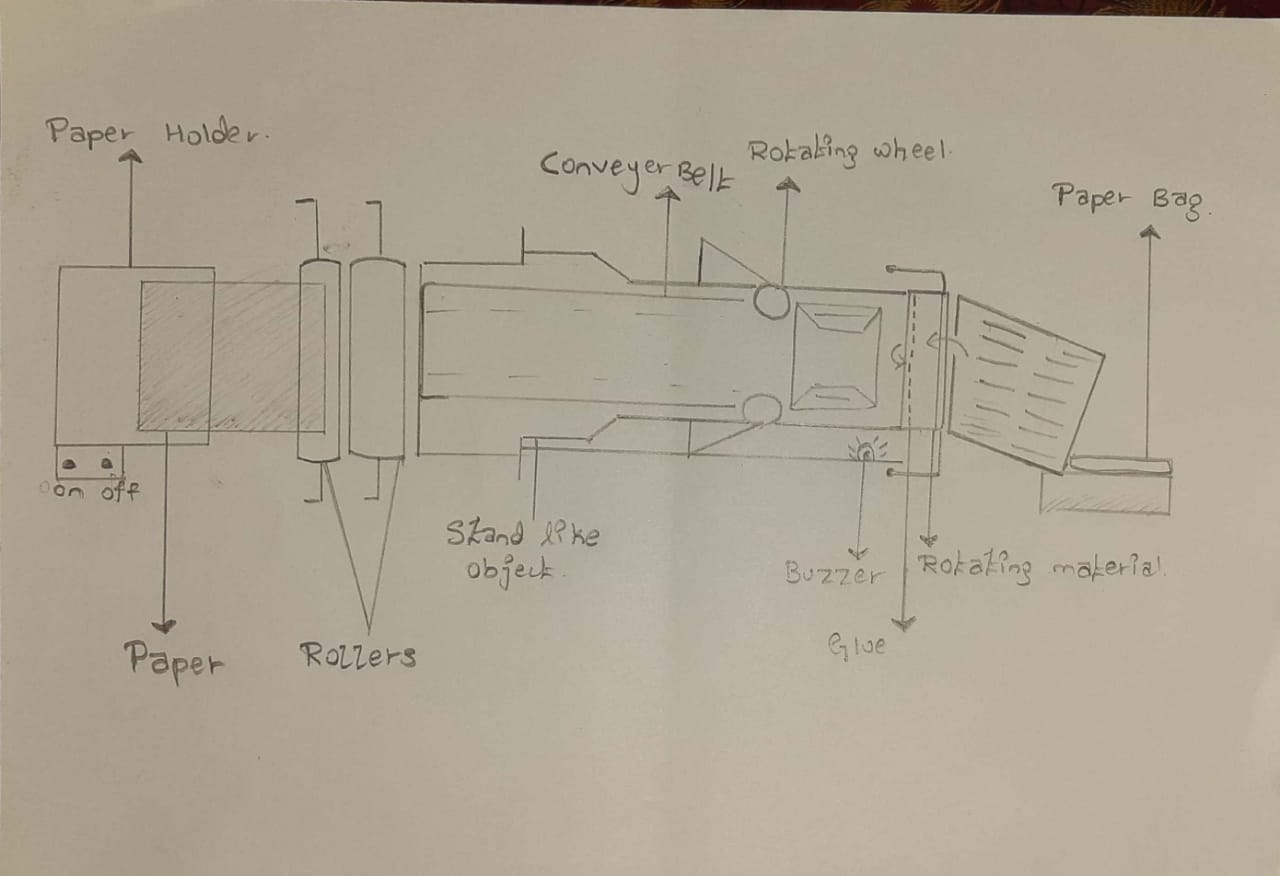 Paper Holder.
Conveyer Belt
Rotating wheel.
Paper Bag.
on off
Stand like
object.
Buzzer
Rotating material.
Glue
Paper
Rollers